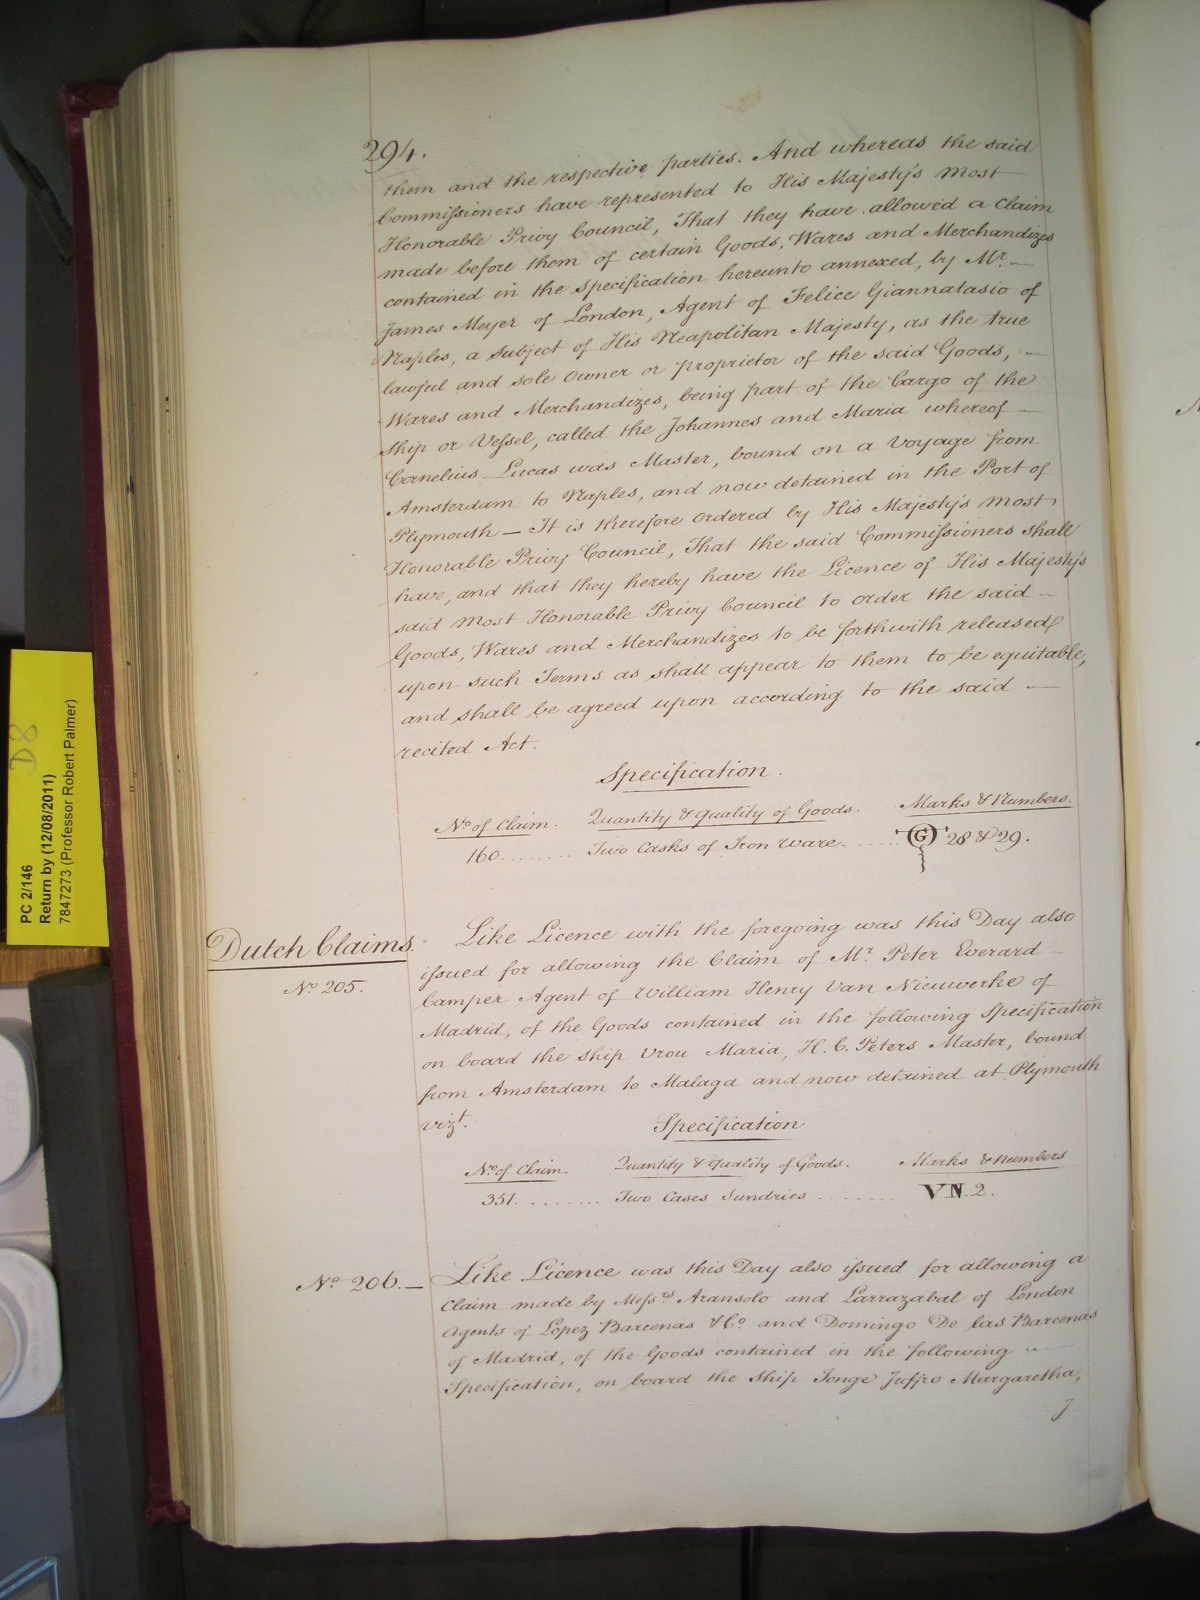 294.
them and the respective parties. And whereas the said
Commissioners have represented to His Majesty's most
Honorable Privy Council, That they have allowed a Claim
made before them of certain Goods, Wares and Merchandizes
contained in the Specification hereunto annexed, by Mr. —
James Meyer of London, Agent of Felice Giannatasio of
Naples, a Subject of His Neapolitan Majesty, as the true
lawful and sole Owner or proprietor of the said Goods, —
Wares and Merchandizes, being part of the Cargo of the
Ship or Vessel, called the Johannes and Maria whereof —
Cornelius Lucas was Master, bound on a Voyage from
Amsterdam to Naples, and now detained in the Port of
Plymouth — It is therefore Ordered by His Majesty's most
Honorable Privy Council, That the said Commissioners shall
have, and that they hereby have the Licence of His Majesty's
said most Honorable Privy Council to order the said —
Goods, Wares and Merchandizes to be forthwith released
upon such Terms as shall appear to them to be equitable,
and shall be agreed upon according to the said —
recited Act.
Specification.
No. of Claim. Quantity & Quality of Goods. Marks & Numbers.
160........ Two Casks of Iron Ware. ..... G 28 & 29.
Dutch Claims.
No. 205.
Like Licence with the foregoing was this Day also
issued for allowing the Claim of Mr. Peter Everard —
Camper Agent of William Henry Van Nieuwerke of
Madrid, of the Goods contained in the following Specification
on board the Ship Vrou Maria, H. C. Peters Master, bound
from Amsterdam to Malaga and now detained at Plymouth
vizt.
Specification
No. of Claim. Quantity & Quality of Goods. Marks & Numbers
351. ........ Two Cases Sundries ........ VN. 2.
No. 206. —
Like Licence was this Day also issued for allowing a
Claim made by Messrs Aransolo and Larrazabal of London
Agents of Lopez Barcenas & Co. and Domingo De las Barcenas
of Madrid, of the Goods contained in the following ..
Specification, on board the Ship Jonge Juffro Margaretha,
J
D8
PC 2/146
Return by (12/08/2011)
7847273 (Professor Robert Palmer)